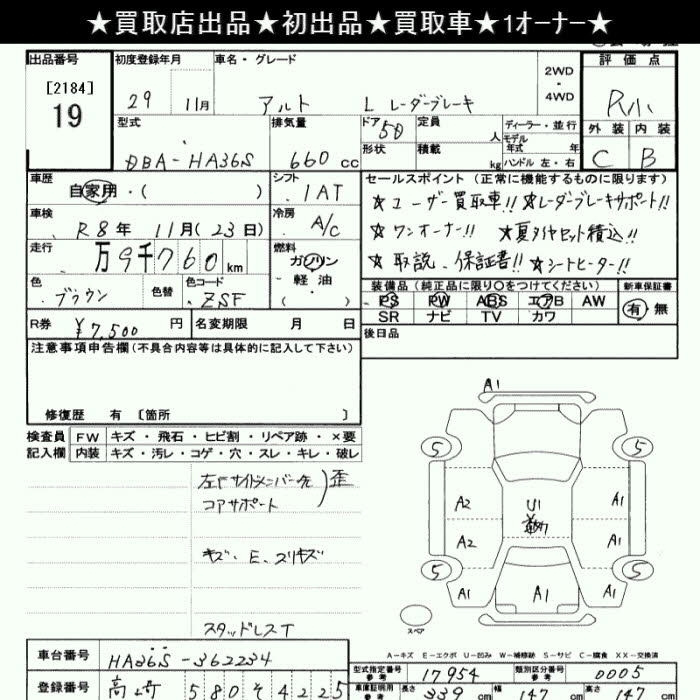 ★買取店出品★初出品★買取車★1ｵｰﾅｰ★
出品番号 初度登録年月 車名・グレード 2WD・4WD 評価点
[2184]
19
29 11月 アルト L レーダーブレーキ R小
型式 排気量 ドア 定員 人 ディーラー・並行 外装 内装
DBA-HA36S 660cc 5D 形状 積載 kg モデル年式 年 ハンドル 左・右 C B
車歴 シフト セールスポイント(正常に機能するものに限ります)
自家用・( ) 1AT ☆ユーザー買取車!! ☆レーダーブレーキサポート!!
車検 R8年 11月(23日) 冷房 A/C ☆ワンオーナー!! ☆夏タイヤセット積込!!
走行 万9千760km 燃料 ガソリン・軽油・( ) ☆取説、保証書!! ☆シートヒーター!!
色 ブラウン 色替 色コード ZSF 装備品(純正品に限り○をつけてください) 新車保証書
PS PW ABS エアB AW 有 無
SR ナビ TV カワ
R券 ¥7,500円 名変期限 月 日 後日品
注意事項申告欄(不具合内容等は具体的に記入して下さい)
修復歴 有 [箇所 ]
検査員記入欄 FW キズ・飛石・ヒビ割・リペア跡・×要
内装 キズ・汚レ・コゲ・穴・スレ・キレ・破レ
コアサポート 歪
キズ、E、スリキズ
スタッドレスT
A1
5 5
A2 U1 A1
A2 A1
5 5
A1 A1 A1
スペア
A-キズ E-エクボ U-凹み W-補修跡 S-サビ C-腐食 XX-交換済
車台番号 HA36S-362234
型式指定番号 参考 17954 類別区分番号 参考 0005
登録番号 高崎 580 そ 4225
車庫証明用 参考 長さ 339cm 幅 147cm 高さ 147cm